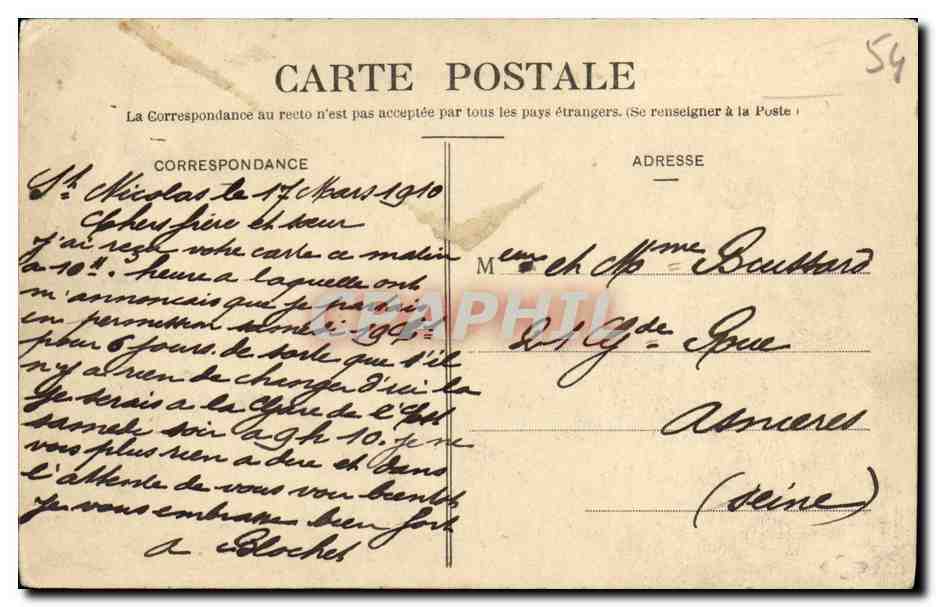 54
CARTE POSTALE
La Correspondance au recto n'est pas acceptée par tous les pays étrangers. (Se renseigner à la Poste)
CORRESPONDANCE
St Nicolas le 17 Mars 1910
Chers frère et sœur
j'ai reçu votre carte ce matin
a 10H. heure a laquelle ont
m'annoncais que je partais
en permission samedi 19 Ct
pour 6 jours. de sorte que s'il
n'y a rien de changer d'ici la
Je serais a la Gare de l'Est
samedi soir a 9 h 10. je ne
vous plus rien a dire et dans
l'attente de vous voir bientot
Je vous embrasse bien fort
a Blochet
ADRESSE
Meur et Mme Boussard
21 Gde Rue
Asnieres
(Seine)
CPAPHIL